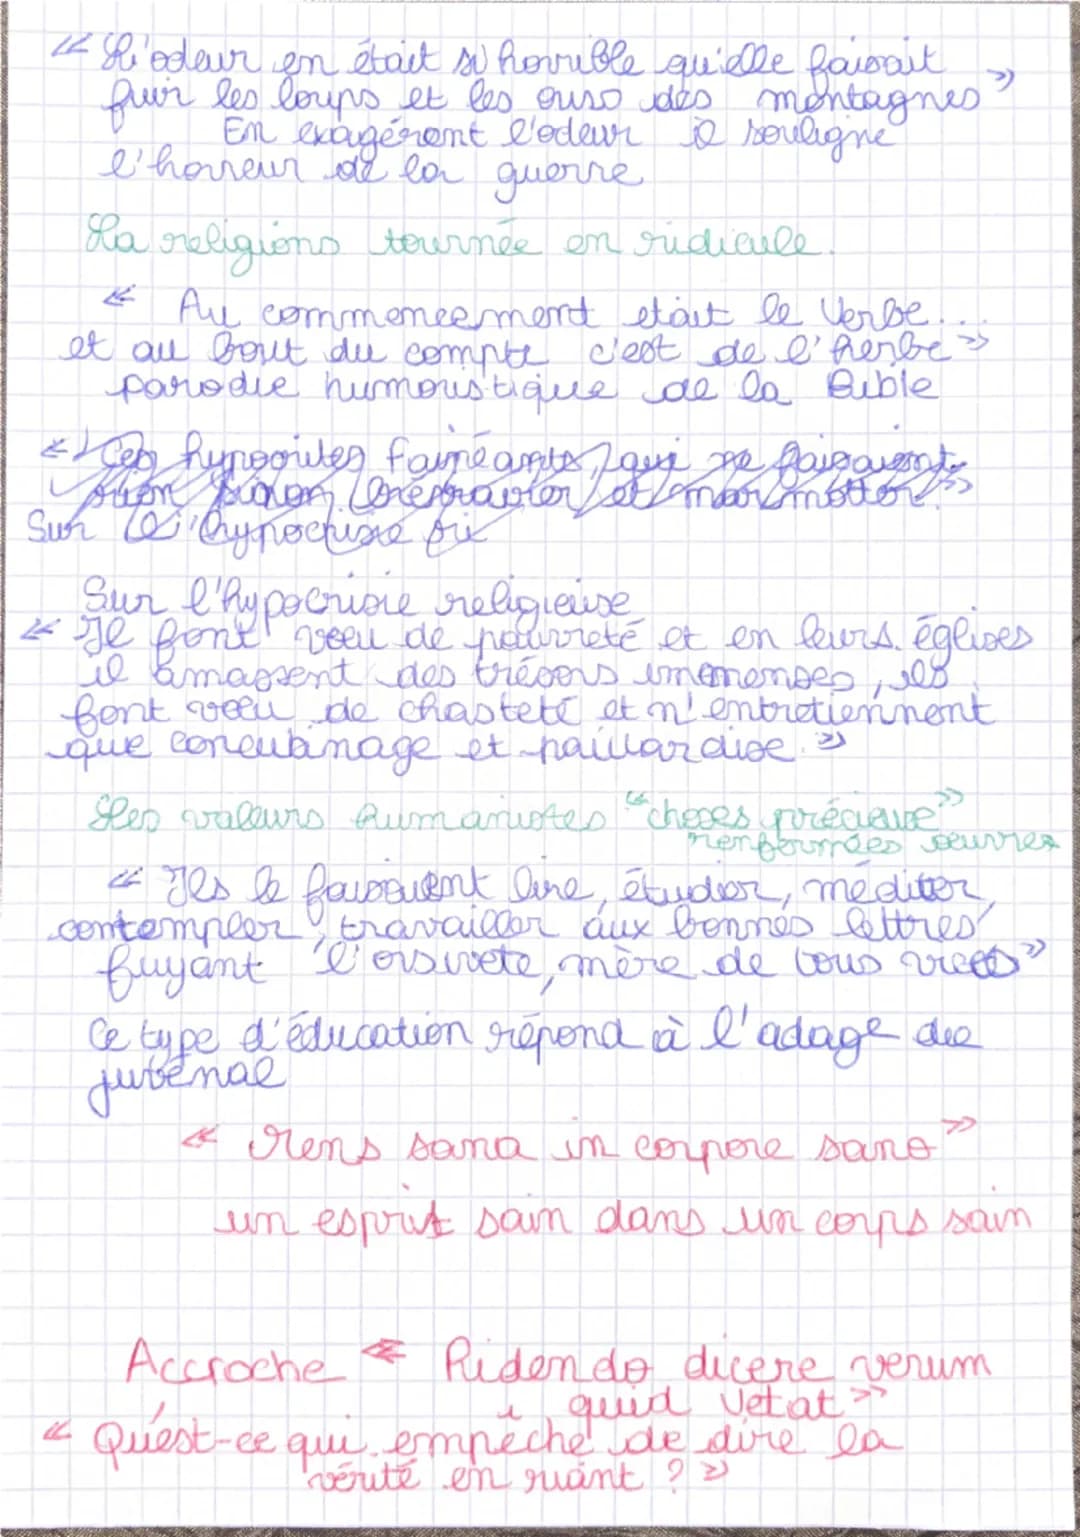 « L'odeur en était si horrible qu'elle faisait
fuir les loups et les ours des montagnes »
En exagérant l'odeur il souligne
l'horreur de la guerre
La religions tournée en ridicule.
« Au commencement etait le Verbe...
et au bout du compte c'est de l'herbe »
parodie humoristique de la Bible
« Ces hypocrites fainéants, qui ne faisaient
rien sinon et marmotter. »
Sur l'hypocrisie
Sur l'hypocrisie religieuse
« Il font voeu de pauvreté et en leurs églises
il amassent des trésors immenses, ils
font voeu de chasteté et n'entretiennent
que concubinage et paillardise. »
Les valeurs humanistes "choses précieuse"
renfermées oeuvres
« Ils le faisaient lire, étudier, méditer,
contempler, travailler aux bonnes lettres
fuyant l'oisiveté, mère de tous vices »
Ce type d'éducation répond à l'adage de
juvénal
« Mens sana in corpore sano »
un esprit sain dans un corps sain
Accroche « Ridendo dicere verum
quid vetat »
« Qu'est-ce qui empêche de dire la
vérité en riant ? »